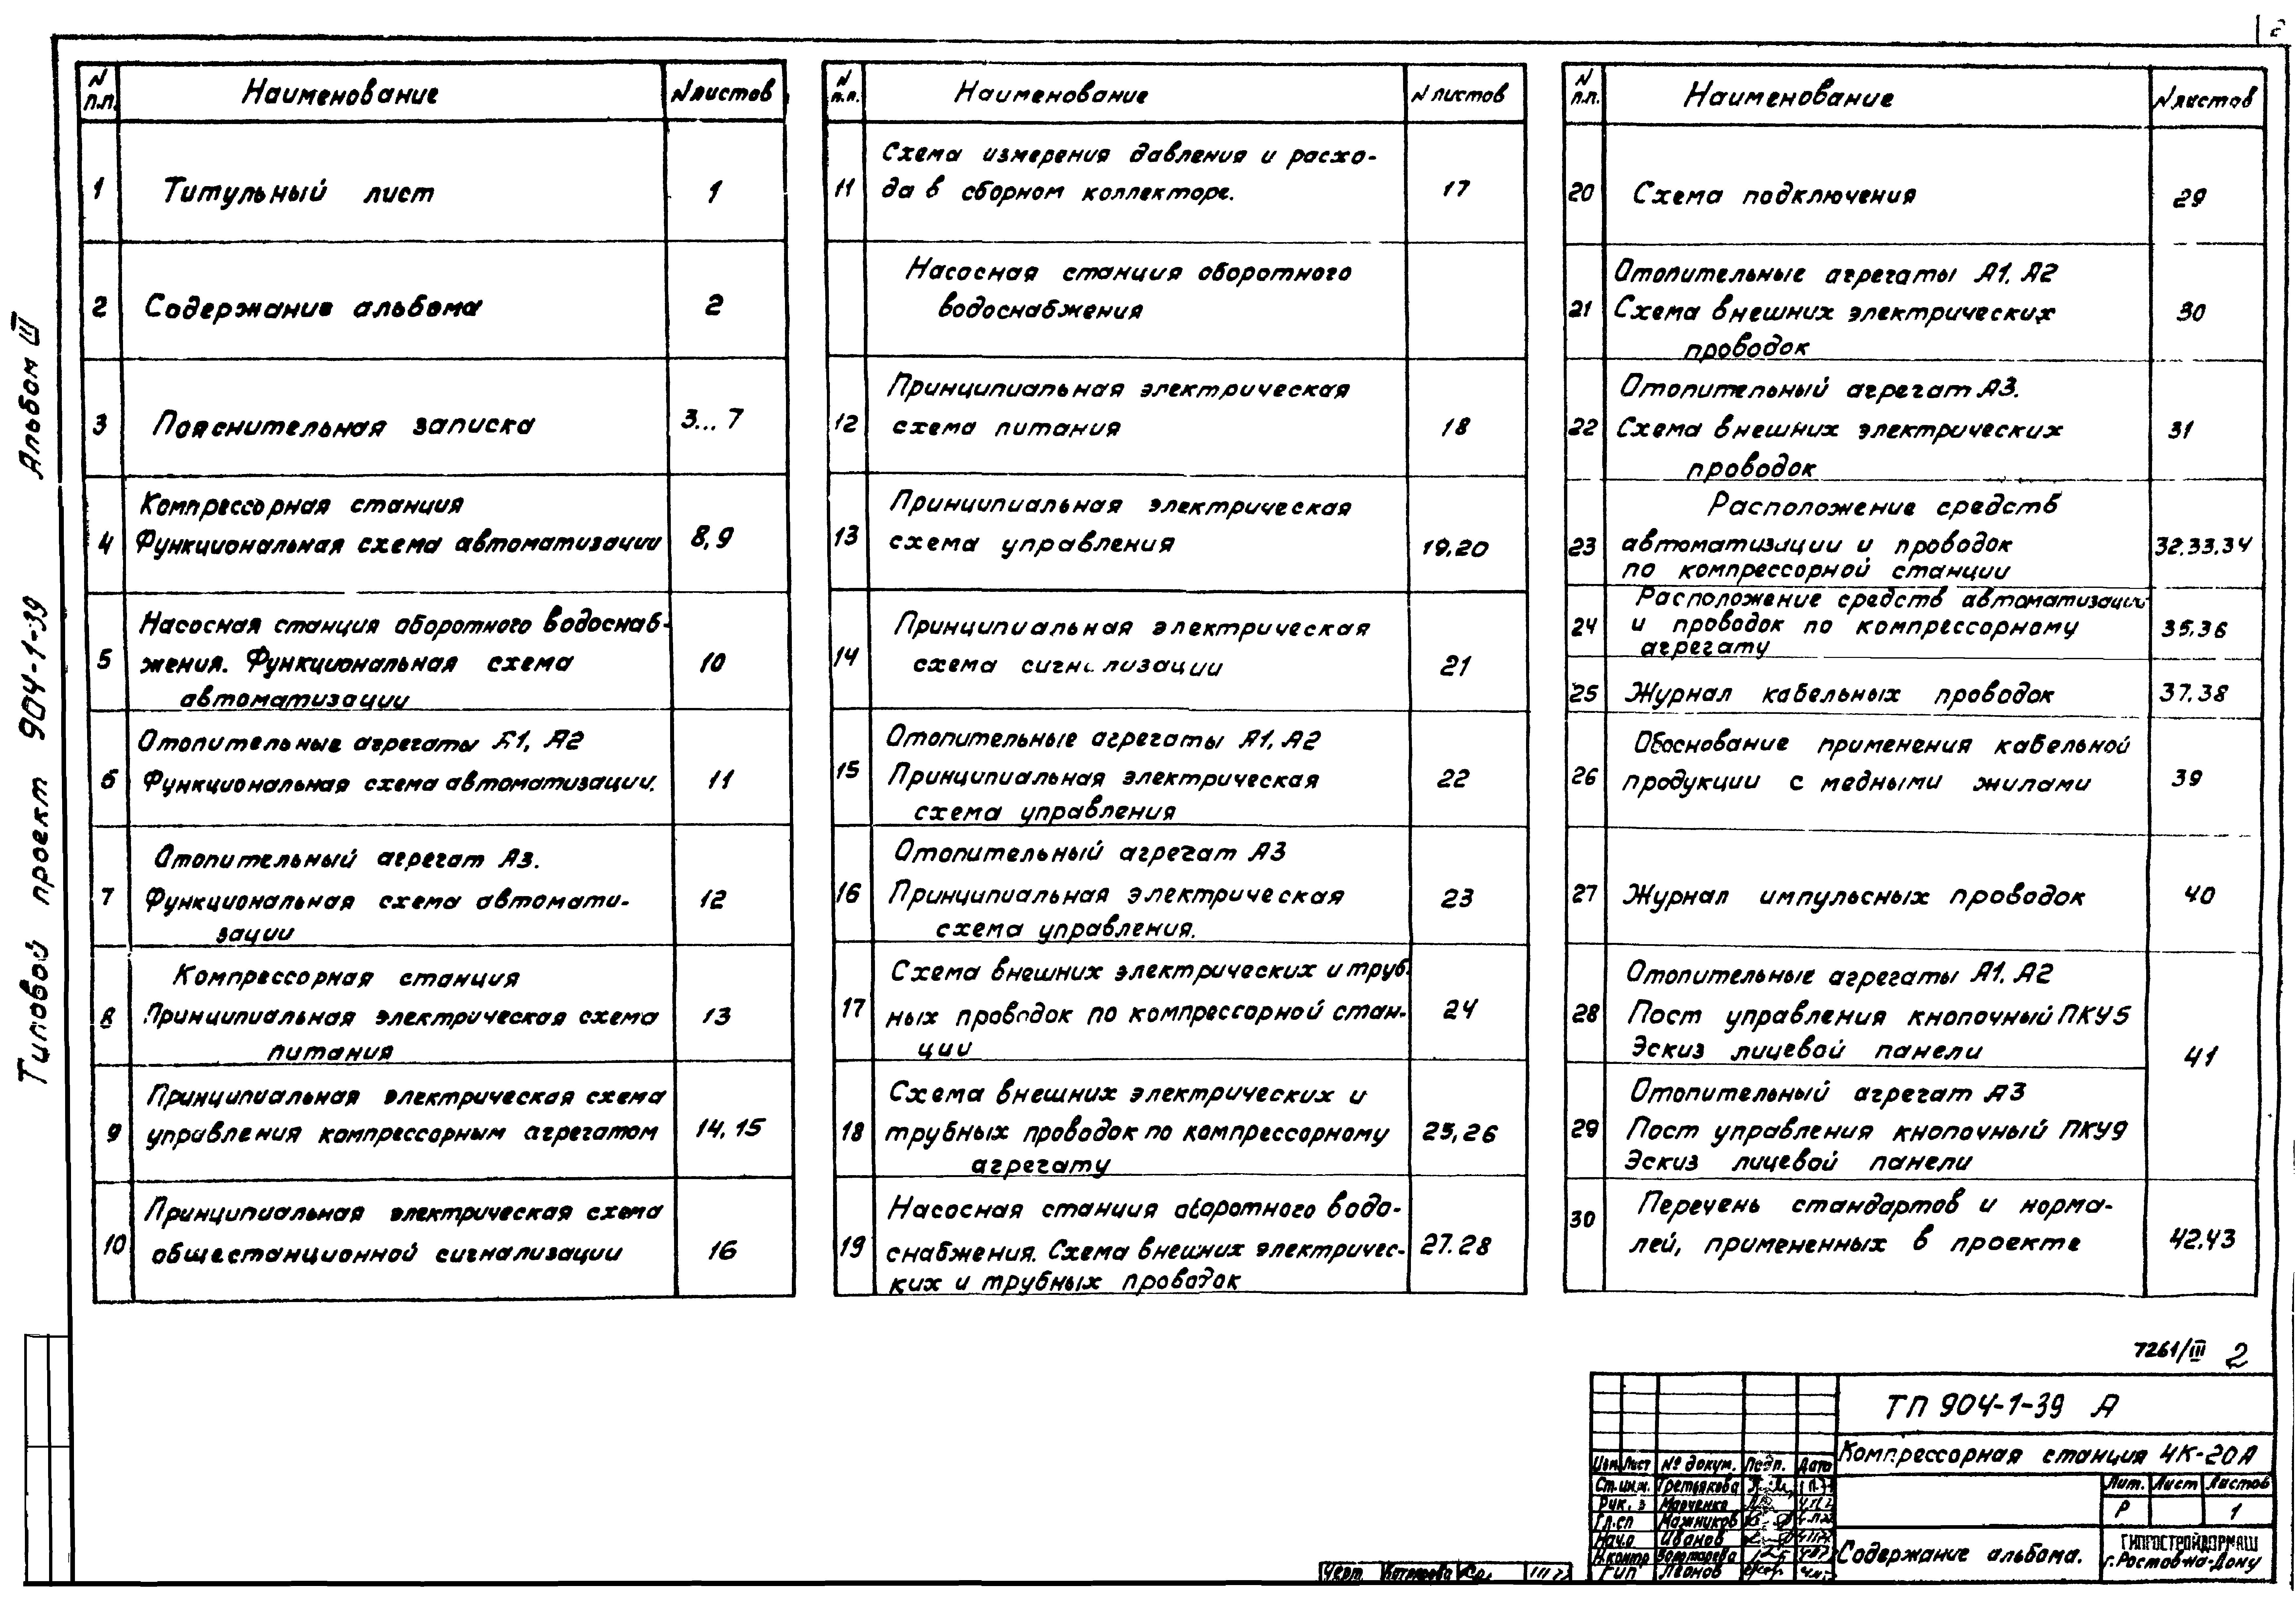 2
Альбом III
Типовой проект 904-1-39
N п.п. Наименование N листов
1 Титульный лист 1
2 Содержание альбома 2
3 Пояснительная записка 3...7
Компрессорная станция
4 Функциональная схема автоматизации 8,9
Насосная станция оборотного водоснаб-
5 жения. Функциональная схема 10
автоматизации
Отопительные агрегаты А1, А2
6 Функциональная схема автоматизации. 11
Отопительный агрегат А3.
7 Функциональная схема автомати- 12
зации
Компрессорная станция
8 Принципиальная электрическая схема 13
питания
Принципиальная электрическая схема
9 управления компрессорным агрегатом 14,15
Принципиальная электрическая схема
10 общестанционной сигнализации 16
N п.п. Наименование N листов
Схема измерения давления и расхо-
11 да в сборном коллекторе. 17
Насосная станция оборотного
водоснабжения
Принципиальная электрическая
12 схема питания 18
Принципиальная электрическая
13 схема управления 19,20
Принципиальная электрическая
14 схема сигнализации 21
Отопительные агрегаты А1, А2
15 Принципиальная электрическая 22
схема управления
Отопительный агрегат А3
16 Принципиальная электрическая 23
схема управления.
Схема внешних электрических и труб-
17 ных проводок по компрессорной стан- 24
ции
Схема внешних электрических и
18 трубных проводок по компрессорному 25,26
агрегату
Насосная станция оборотного водо-
19 снабжения. Схема внешних электричес- 27.28
ких и трубных проводок
N п.п. Наименование N листов
20 Схема подключения 29
Отопительные агрегаты А1, А2
21 Схема внешних электрических 30
проводок
Отопительный агрегат А3.
22 Схема внешних электрических 31
проводок
Расположение средств
23 автоматизации и проводок 32.33.34
по компрессорной станции
Расположение средств автоматизации
24 и проводок по компрессорному 35,36
агрегату
25 Журнал кабельных проводок 37.38
Обоснование применения кабельной
26 продукции с медными жилами 39
27 Журнал импульсных проводок 40
Отопительные агрегаты А1. А2
28 Пост управления кнопочный ПКУ5
Эскиз лицевой панели 41
Отопительный агрегат А3
29 Пост управления кнопочный ПКУ9
Эскиз лицевой панели
Перечень стандартов и норма-
30 лей, примененных в проекте 42,43
7261/III 2
ТП 904-1-39 А
Компрессорная станция 4К-20А
Изм Лист № докум. Подп. Дата
Ст.инж. Третьякова
Рук. Марченко
Гл.сп Мажников
Нач.о Иванов
Н.контр Золотарева
ГИП Леонов
Лит. Лист Листов
Р 1
Содержание альбома.
ГИПРОСТРОЙДОРМАШ
г.Ростов-на-Дону
Черт.